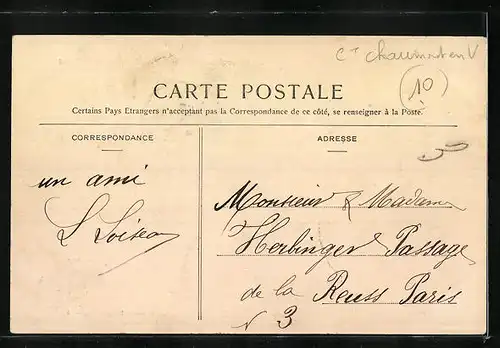 Ct Chaumont en V
10
CARTE POSTALE
Certains Pays Etrangers n'acceptant pas la Correspondance de ce côté, se renseigner à la Poste.
CORRESPONDANCE
ADRESSE
un ami
L Loiseau
Monsieur & Madame
Herbinger Passage
de la Reuss Paris
N 3